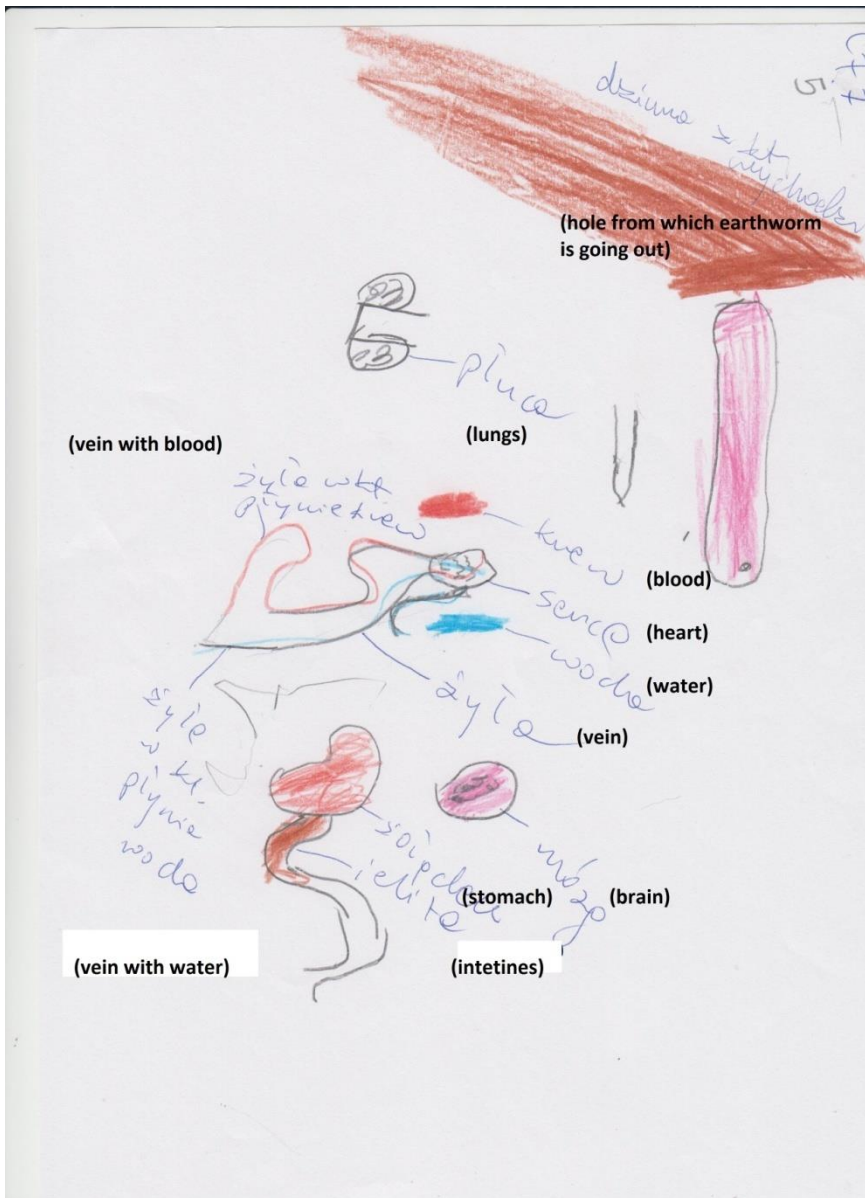 dziura z kt.
wychodzi
(hole from which earthworm
is going out)
płuca
(lungs)
(vein with blood)
żyła w kt
płynie krew
krew
(blood)
serce
(heart)
woda
(water)
żyła
(vein)
żyła
w kt.
płynie
woda
żołądek
jelita
mózg
(stomach)
(brain)
(vein with water)
(intetines)